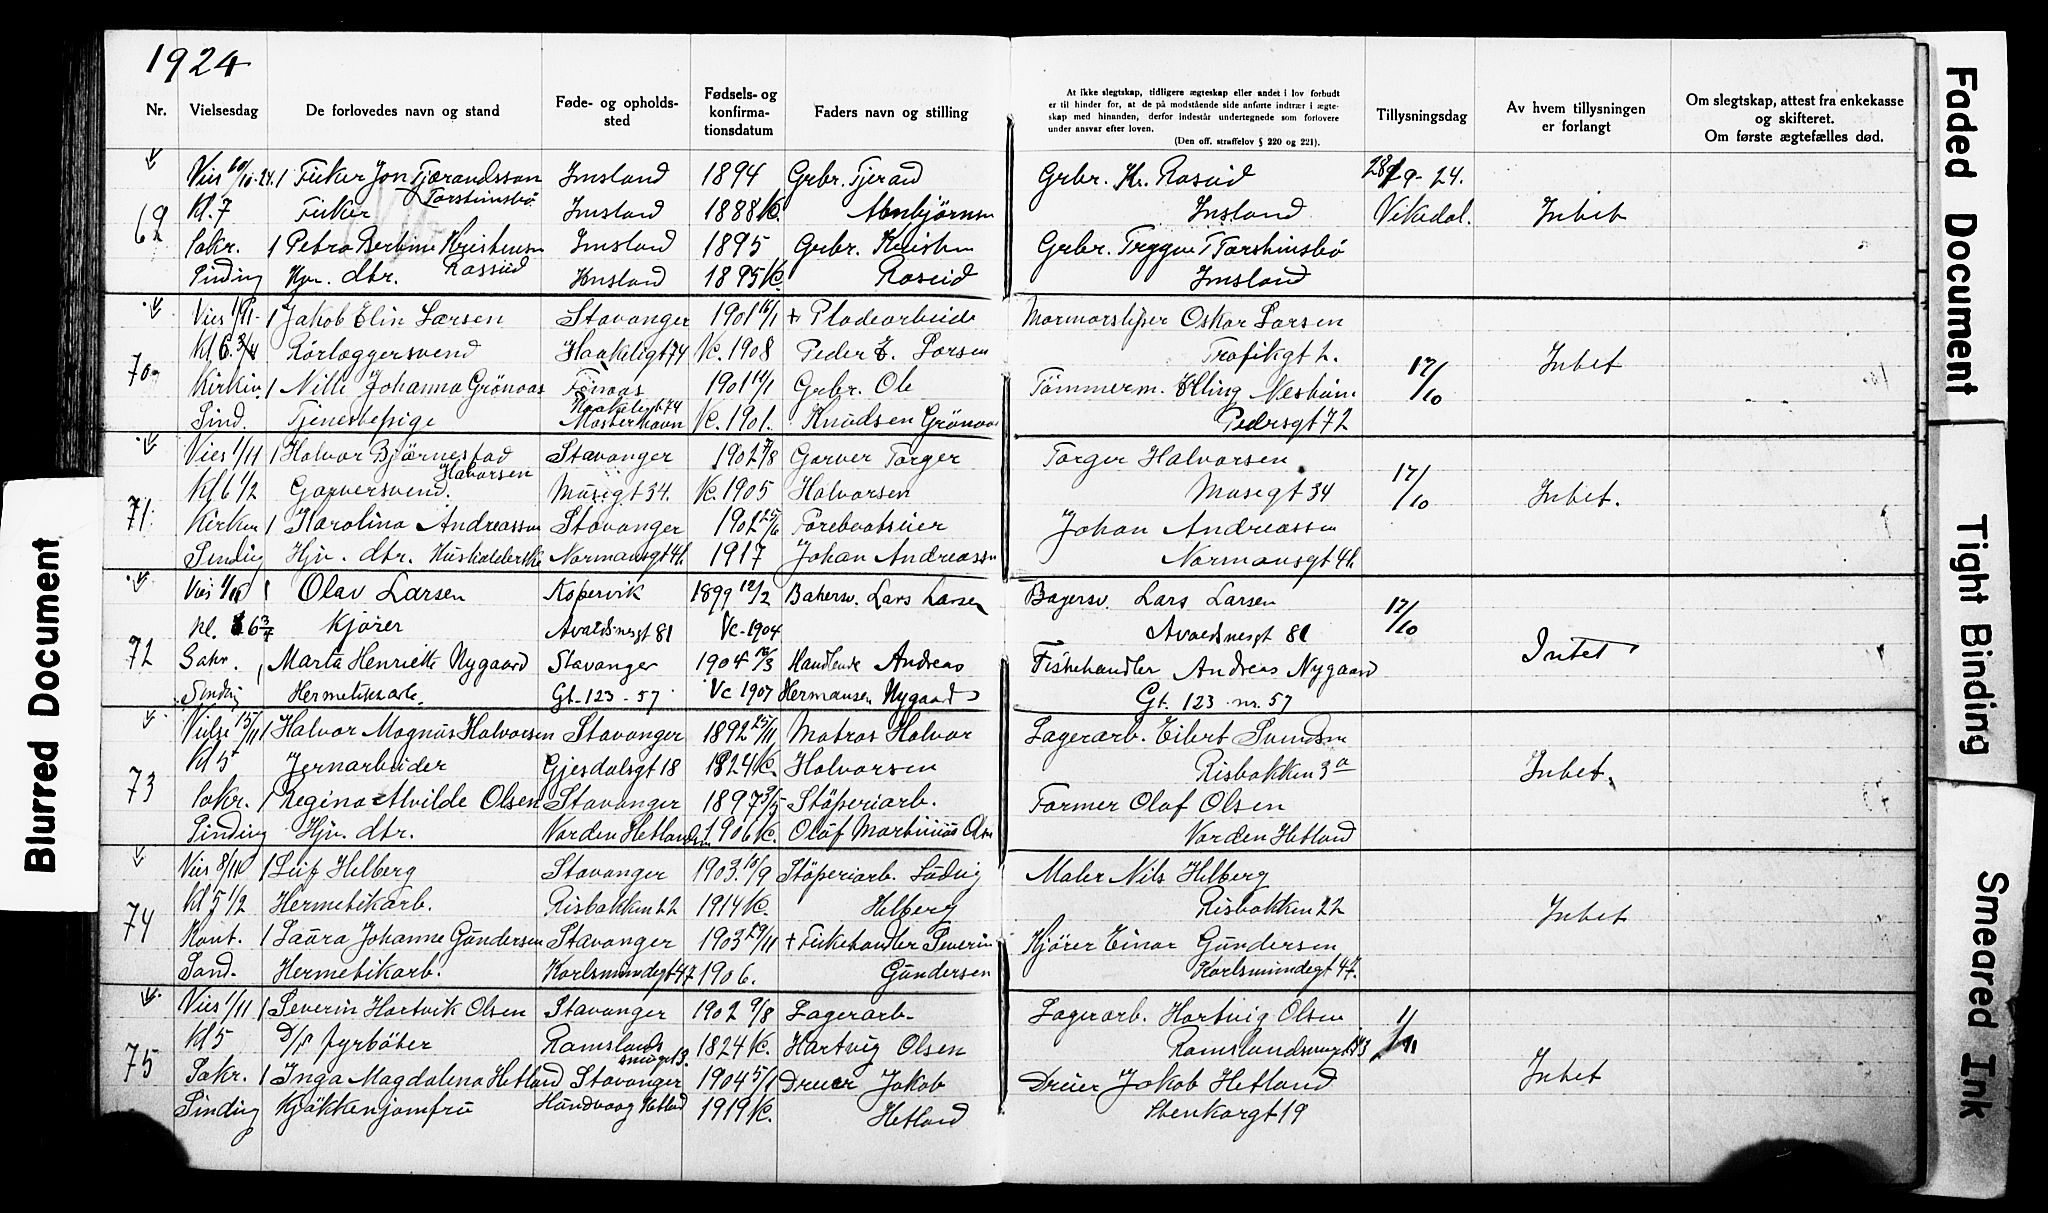 1924
Nr.
Vielsesdag
De forlovedes navn og stand
Føde- og opholds-
sted
Fødsels- og
konfirma-
tionsdatum
Faders navn og stilling
At ikke slegtskap, tidligere ægteskap eller andet i lov forbudt
er til hinder for, at de på modstående side anførte indtrær i ægte-
skap med hinanden, derfor indestår undertegnede som forlovere
under ansvar efter loven.
(Den off. straffelov § 220 og 221).
Tillysningsdag
Av hvem tillysningen
er forlangt
Om slegtskap, attest fra enkekasse
og skifteret.
Om første ægtefælles død.
69 Imsland 1894 Grbr. Tjerand Grbr. Kr. Raseid 28/9-24.
Kl. 7 Fisker Torsteinsbø Imsland 1888 Kc. Imsland Vikedal. Intet
Sakr. 1 Petra Berline Kristensen Imsland 1895 Grbr. Kristen Grbr. Trygve T Torsteinsbø
Sinding Hjv. dtr. Rasseid Imsland 1895 Kc. Raseid Imsland
70 Vies 1/11- 1 Jakob Elin Larsen Stavanger 1901 16/1 + Pladearbeide Marmorsliper Oskar Larsen
Kl 6. 3/4 Rörlæggersvend Haakeligt 74 Kc. 1908 Peder E. Larsen Trafikgt 2. 17/10 Intet
Kirken. 1 Nille Johanna Grönaas 1901 14/1 Grbr. Ole Tömmerm. Elling
Sind. Tjenestepige Haakeligt 74 Mosterhavn Kc. 1901. Knudsen Grönaas Pedersgt 72
71 Vies 1/11 1 Halvor Bjørnestad Halvorsen Stavanger 1902 7/8 Garver Torger Torger Halvorsen
Kl 6 1/2 Garversvend. Musegt 34. Kc. 1905 Halvorsen Musegt 34 17/10 Intet.
Kirken 1 Karolina Andreassen Stavanger 1902 25/6 Johan Andreassen
Sinding Hjv. dtr. Normansgt 41. 1917 Johan Andreassen Normansgt 41
72 Vies 1/11 1 Olav Larsen Kopervik 1899 12/2 Bakersv. Lars Larsen Bagersv. Lars Larsen
kl. 6 3/4 Kjører Avaldsnesgt 81 Vc. 1904 Avaldsnesgt 81 17/10
Sakr. 1 Marta Henriette Nygaard Stavanger 1904 16/3 Handlende Andreas Fiskehandler Andreas Nygaard Intet
Sinding Hermetikkarb. Gt. 123 - 57 Vc 1907 Hermansen Nygaard Gt. 123 nr. 57
73 Vielse 15/11 1 Halvor Magnus Halvorsen Stavanger 1892 25/11 Matros Halvor Lagerarb. Eilert Svendsen
Kl 5 Jernarbeider Gjesdalsgt 18 1824 Kc. Halvorsen Risbakken 3 a Intet.
Sakr. 1 Regina Alvilde Olsen Stavanger 1897 3/5 Stöperiarb. Former Olaf Olsen
Sinding Hjv. dtr. Varden Hetland 1906 Kc. Olaf Martinius Olsen Varden Hetland
74 Vies 8/11 1 Leif Helberg Stavanger 1903. 10/9 Stöperiarb. Ludvig Maler Nils Helberg
Kl 5 1/2 Hermetikarb. Risbakken 22 1914 Kc. Helberg Risbakken 22 Intet
Kont. 1 Laura Johanne Gundersen Stavanger 1903 29/11 + Fiskehandler Severin Kjører Einar Gundersen
Sand. Hermetikarb. Karlsmindegt 47 1906. Gundersen Karlsmindegt 47.
75 Vies 1/11 1 Severin Hartvik Olsen Stavanger 1902 9/8 Lagerarb. Lagerarb. Hartvig Olsen
Kl 5 D/s fyrböter Ramslandsmuget 3. 1824 Kc. Hartvig Olsen Ramslandsmuget 3 1/11
Sakr. 1 Inga Magdalena Hetland Stavanger 1904 5/1 Dreier Jakob Dreier Jakob Hetland Intet
Sinding Kjökkenjomfru Hundvaag Hetland 1919 Kc. Hetland Stenkargt 19
Blurred Document
Faded Document
Tight Binding
Smeared Ink